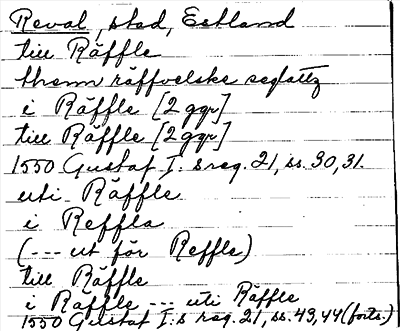 Reval, stad, Estland
till Räffle
them räffvelske seglattz
i Räffle [2 ggr]
till Räffle [2 ggr]
1550 Gustaf I:s reg. 21, ss. 30, 31.
uti Räffle
i Reffla
(--- ut för Reffle)
till Räffle
i Räffle --- uti Räffle
1550 Gustaf I:s reg. 21, ss. 43, 44 (forts.)